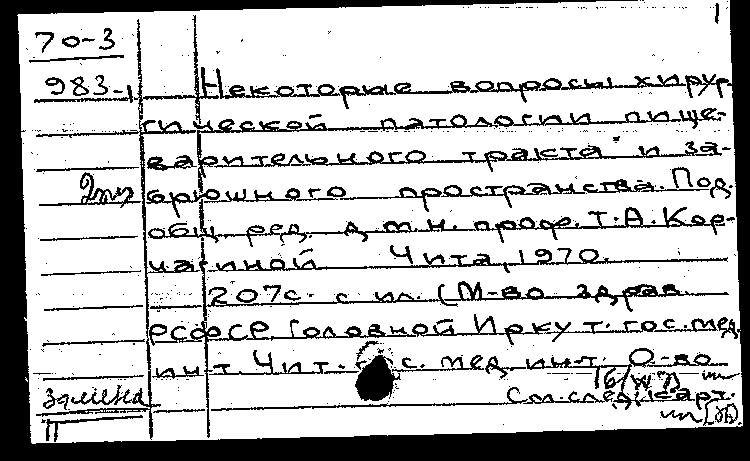 1
70-3
983-1
Некоторые вопросы хирур-
гической патологии пище-
варительного тракта и за-
брюшного пространства. Под.
2 экз
общ. ред. д.м.н. проф. Т.А. Кор-
чагиной Чита, 1970.
207с. с ил. (М-во здрав.
РСФСР. Головной Иркут. гос. мед.
ин-т. Чит. с. мед. ин-т. О-во
замена
См. след. карт.